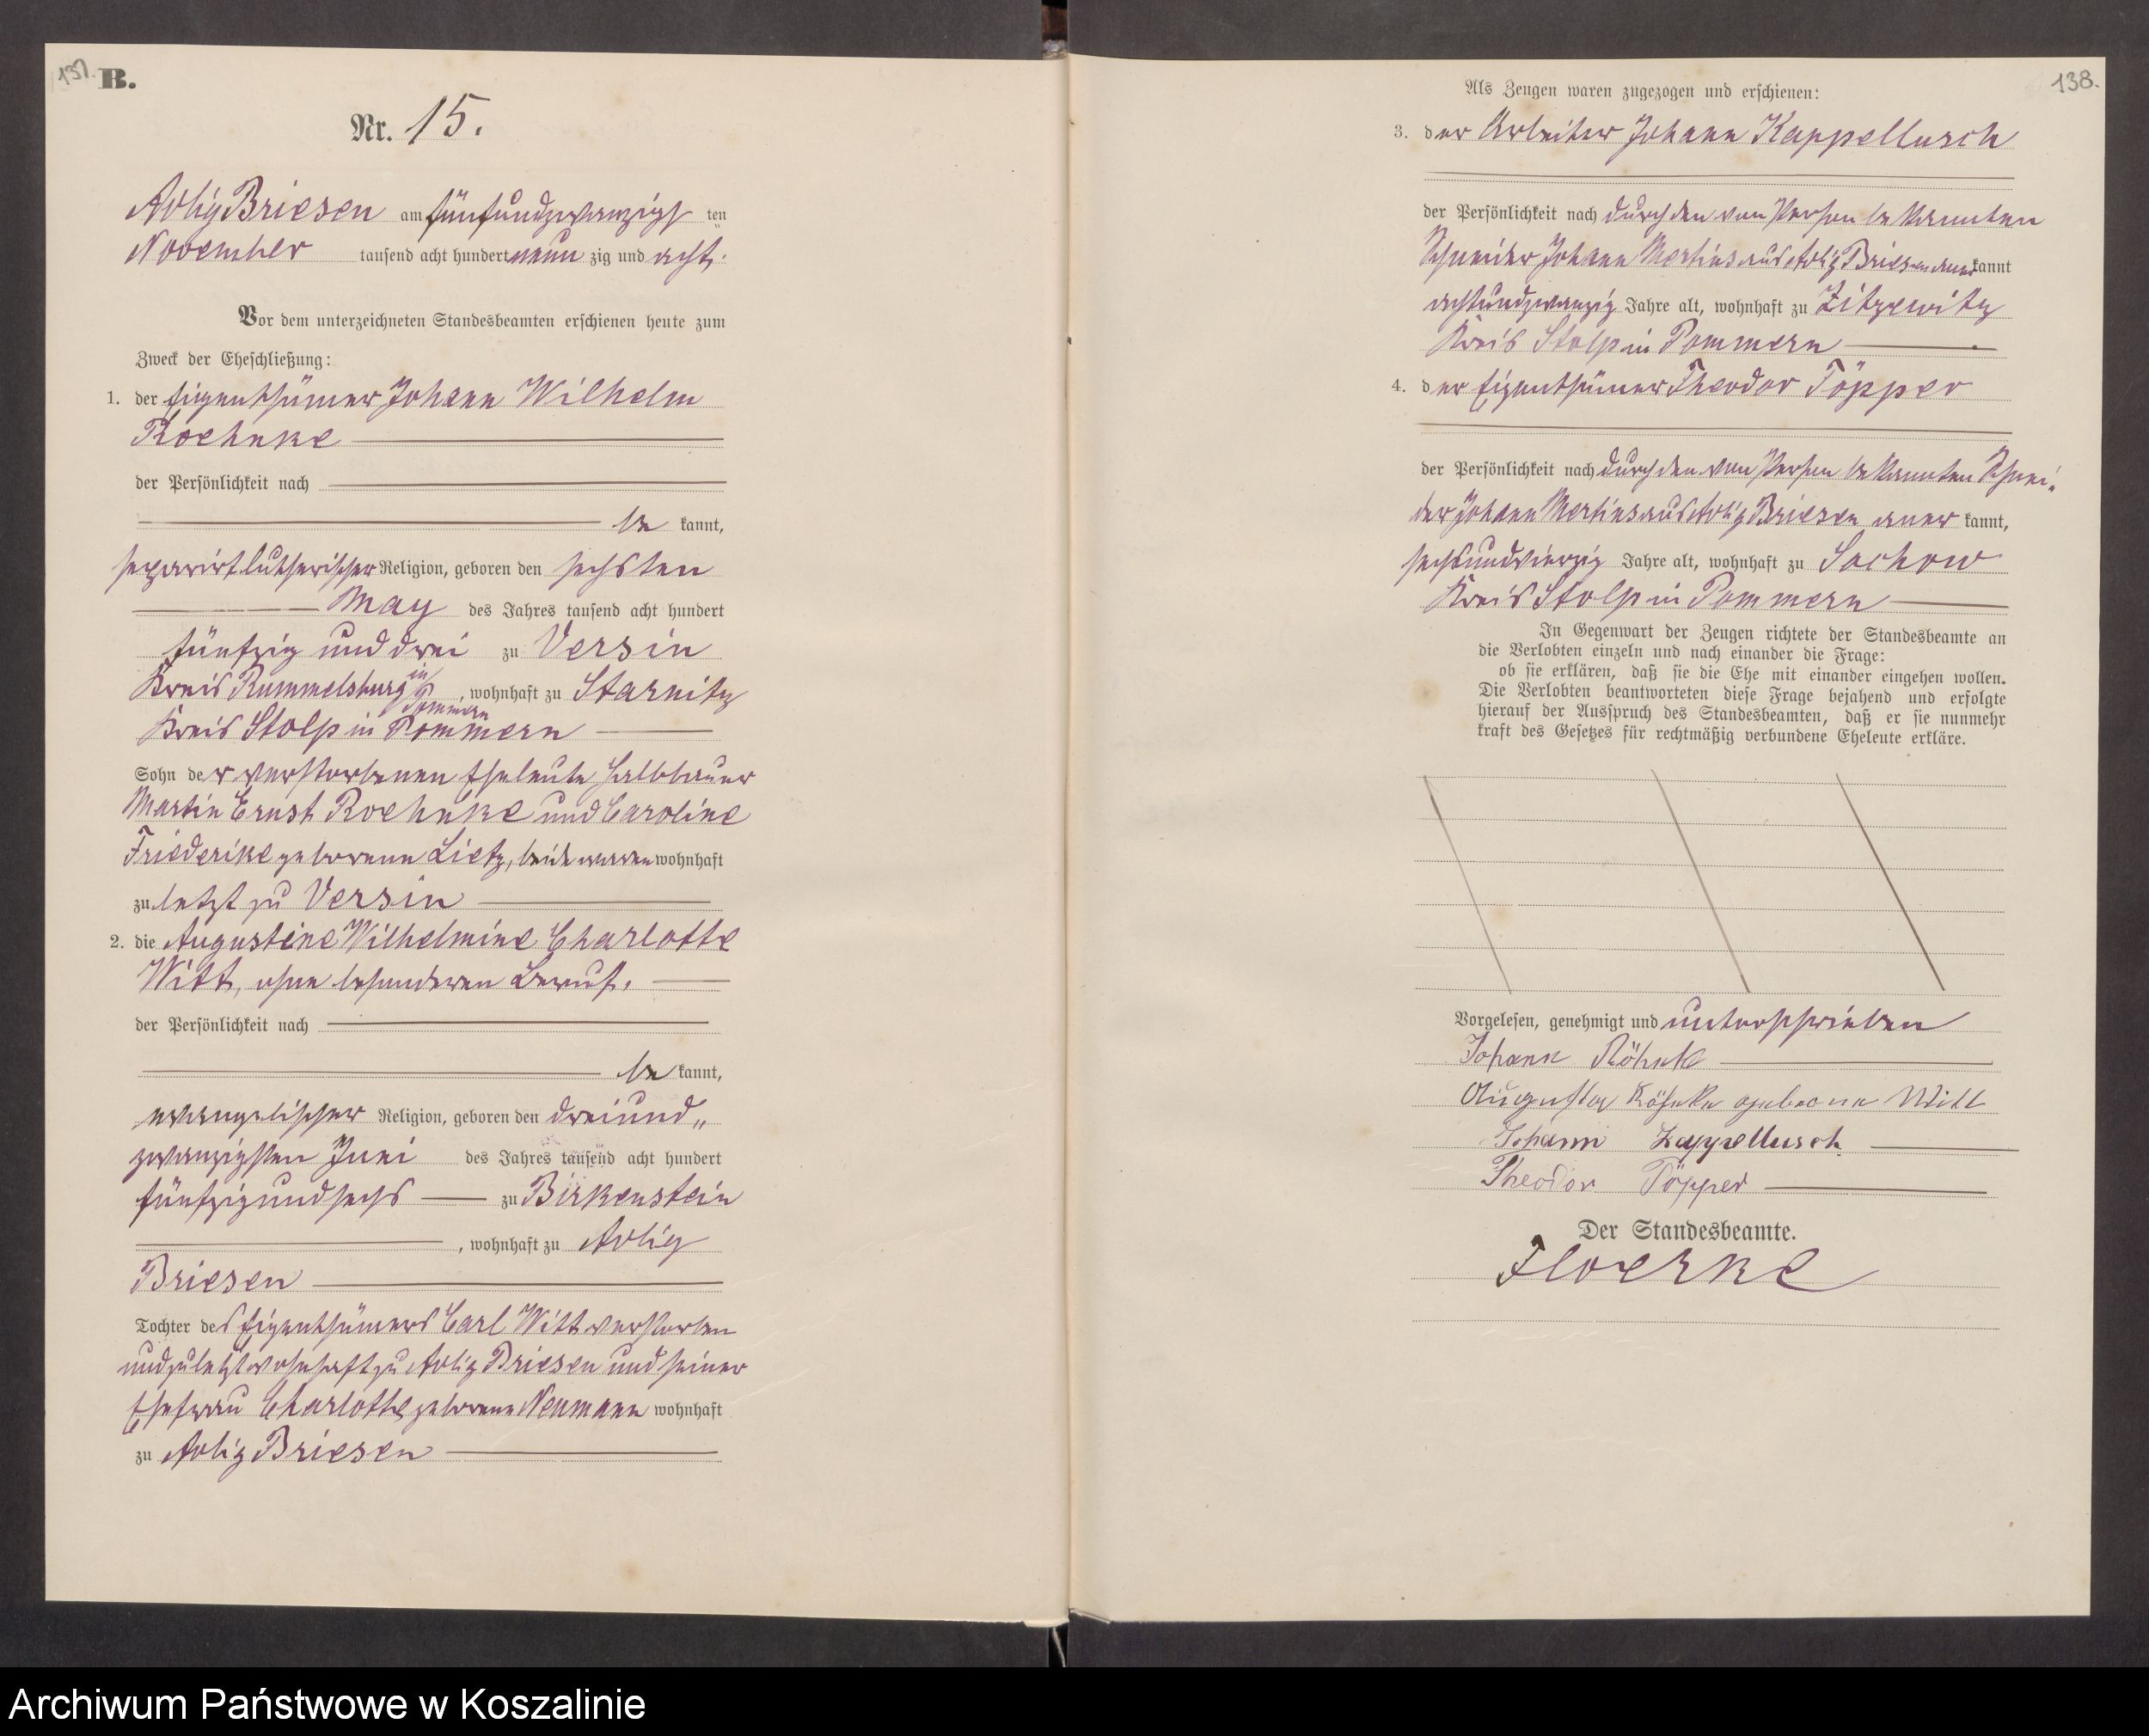 137.
B.
Nr. 15.
Adlig Briesen am fünfundzwanzigsten
November tausend acht hundert neunzig und acht.
Vor dem unterzeichneten Standesbeamten erschienen heute zum
Zweck der Eheschließung:
1. der Eigenthümer Johann Wilhelm
Roehnke
der Persönlichkeit nach
bekannt,
separirt lutherischer Religion, geboren den sechsten
May des Jahres tausend acht hundert
fünfzig und drei zu Versin
Kreis Rummelsburg in Pommern, wohnhaft zu Starnitz
Kreis Stolp in Pommern
Sohn der verstorbenen Eheleute Halbbauer
Martin Ernst Roehnke und Caroline
Friederike geborene Lietz, beide waren wohnhaft
zuletzt zu Versin
2. die Augustine Wilhelmine Charlotte
Witt, ohne besonderen Beruf.
der Persönlichkeit nach
bekannt,
evangelischer Religion, geboren den dreiund„
zwanzigsten Juni des Jahres tausend acht hundert
fünfzig und sechs zu Birkenstein
, wohnhaft zu Adlig
Briesen
Tochter des Eigenthümers Carl Witt verstorben
und zuletzt wohnhaft zu Adlig Briesen und seiner
Ehefrau Charlotte geborene Neumann wohnhaft
zu Adlig Briesen
138.
Als Zeugen waren zugezogen und erschienen:
3. der Arbeiter Johann Kappellusch
der Persönlichkeit nach durch den von Person bekannten
Schneider Johann Mertins aus Adlig Briesen anerkannt
achtundzwanzig Jahre alt, wohnhaft zu Zitzewitz
Kreis Stolp in Pommern
4. der Eigenthümer Theodor Töpper
der Persönlichkeit nach durch den von Person bekannten Schnei„
der Johann Mertins aus Adlig Briesen anerkannt,
sechsundvierzig Jahre alt, wohnhaft zu Sochow
Kreis Stolp in Pommern
In Gegenwart der Zeugen richtete der Standesbeamte an
die Verlobten einzeln und nach einander die Frage:
ob sie erklären, daß sie die Ehe mit einander eingehen wollen.
Die Verlobten beantworteten diese Frage bejahend und erfolgte
hierauf der Ausspruch des Standesbeamten, daß er sie nunmehr
kraft des Gesetzes für rechtmäßig verbundene Eheleute erkläre.
Vorgelesen, genehmigt und unterschrieben
Johann Röhnke
Auguste Röhnke geborene Witt
Johann Kappellusch
Theodor Töpper
Der Standesbeamte.
Floerke
Archiwum Państwowe w Koszalinie